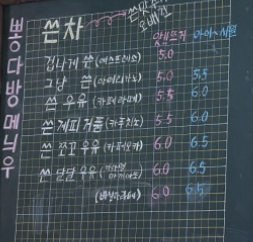 뽕다방메늬우
쓴차
앗뜨거 아아~시원
겁나게 쓴 (에스프레소) 5.0
그냥 쓴 (아메리카노) 5.0 5.5
쓴 우유 (카페라떼) 5.5 6.0
쓴 계피 거품 (카푸치노) 5.5 6.0
쓴 쪼꼬 우유 (카페모카) 6.0 6.5
쓴 달달 우유 6.0 6.5
6.0 6.5